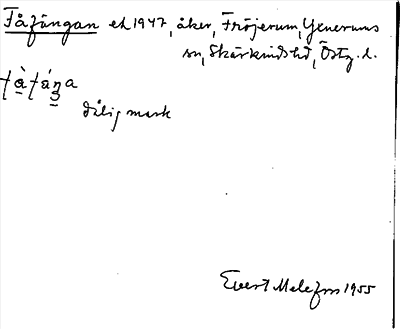 Fåfängan ek 1947, åker, Fröjerum, Yxnerums
sn, Skärkinds hd, Östg. l.
fà̱fáŋ̱a
dålig mark
Evert Melefors 1955